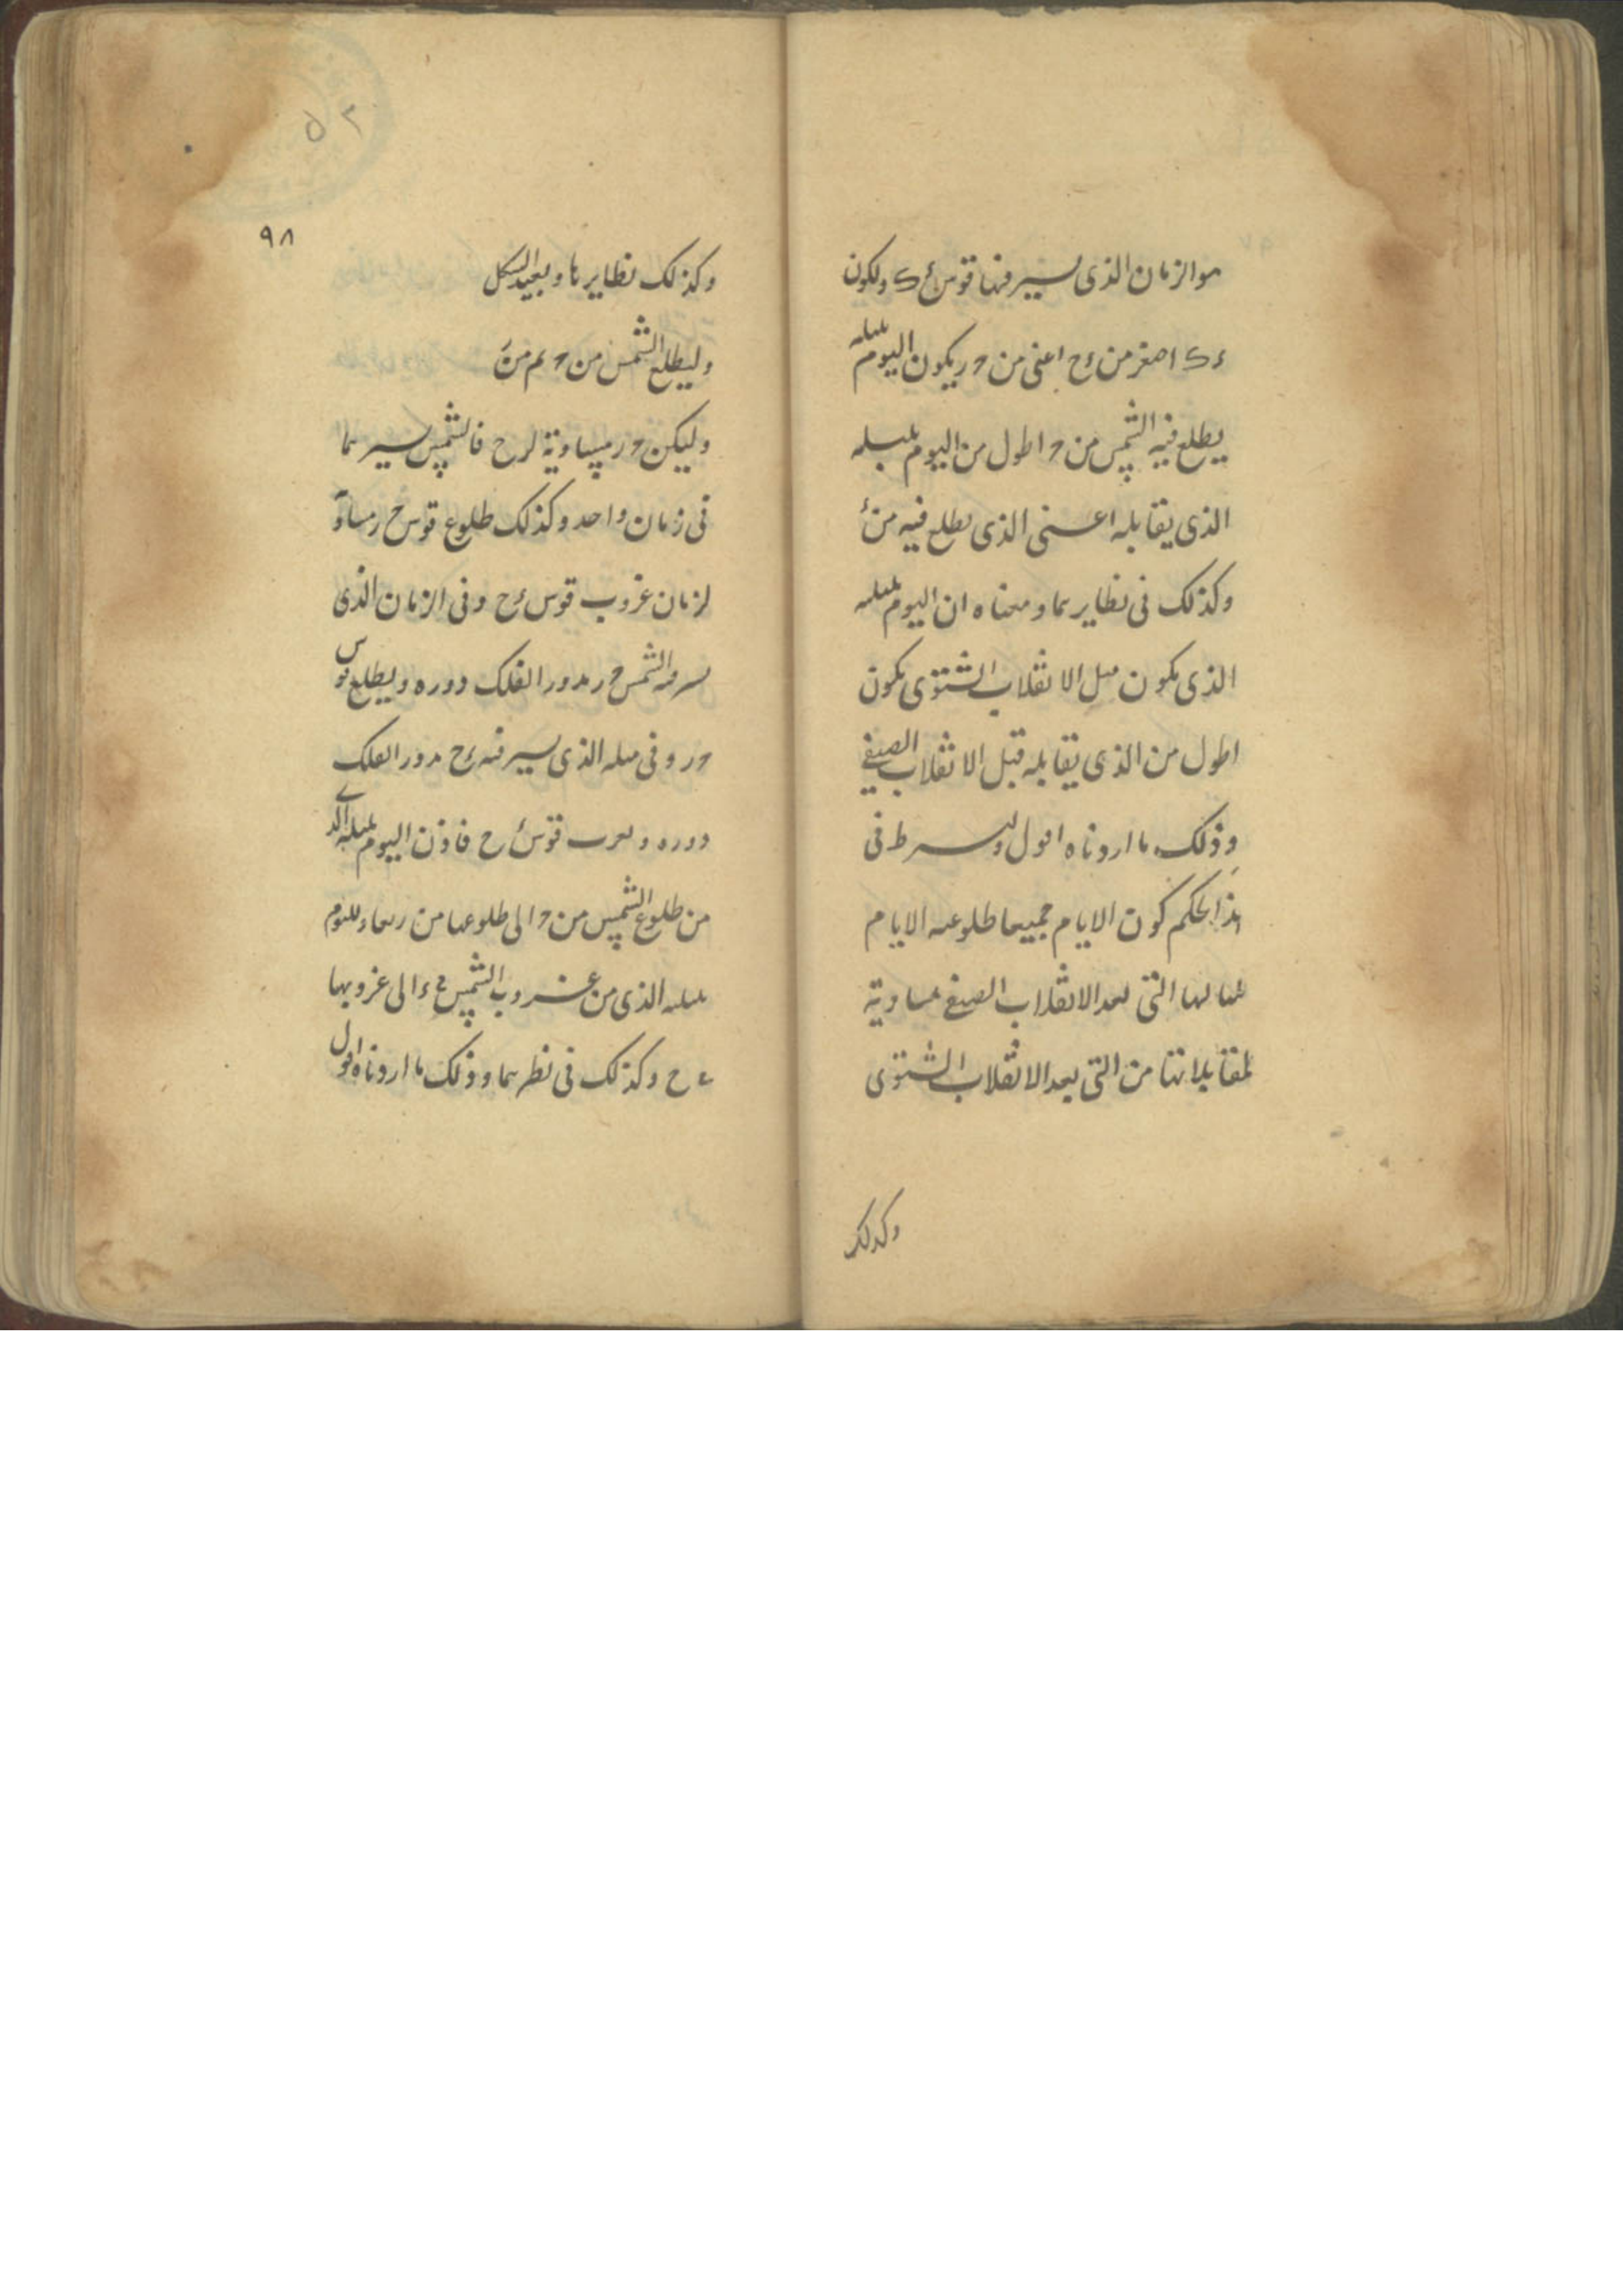 هو الزمان الذى يسير فيها قوس ءك ولكون
ءك اصغر من ءح اعنى من حر يكون اليوم بليله
يطلع فيه الشمس من ح اطول من اليوم بليله
الذى يقابله اعنى الذى يطلع فيه من ء
وكذلك فى نظايرهما ومعناه ان اليوم بليله
الذى يكون قبل الانقلاب الشتوى يكون
اطول من الذى يقابله قبل الانقلاب الصيفى
وذلك ما اردناه اقول ويشترط فى
هذا الحكم كون الايام جميعا طلوعيه الايام
التى بعد الانقلاب الصيفى مساوية
لمقابلاتها من التى بعد الانقلاب الشتوى
وكذلك
٥٢
٩٨
وكذلك نظايرها ويعيد الشكل
وليطلع الشمس من ح ثم من
وليكن حر مساوية لرح فالشمس يسيرهما
فى زمان واحد وكذلك طلوع قوس حر مساو
لزمان غروب قوس ءح وفى الزمان الذى
يسير فيه الشمس حر يدور الفلك دوره ويطلع قوس
حر وفى مثله الذى يسير فيه ءح يدور الفلك
دوره ويغرب قوس ءح فاذن اليوم بليله الذى
من طلوع الشمس من ح الى طلوعها من ر مساو لليوم
بليله الذى من غروب الشمس فى ء الى غروبها
فى ح وكذلك فى نظيرهما وذلك ما اردناه اقول